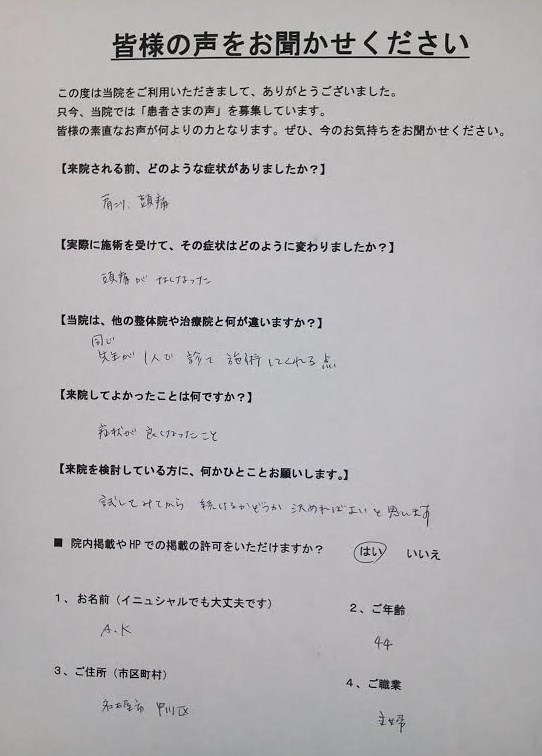 皆様の声をお聞かせください
この度は当院をご利用いただきまして、ありがとうございました。
只今、当院では「患者さまの声」を募集しています。
皆様の素直なお声が何よりの力となります。ぜひ、今のお気持ちをお聞かせください。
【来院される前、どのような症状がありましたか？】
肩こり、頭痛
【実際に施術を受けて、その症状はどのように変わりましたか？】
頭痛がなくなった
【当院は、他の整体院や治療院と何が違いますか？】
同じ
先生が1人で診て施術してくれる点
【来院してよかったことは何ですか？】
症状が良くなったこと
【来院を検討している方に、何かひとことお願いします。】
試してみてから続けるかどうか決めればよいと思います
■ 院内掲載やHPでの掲載の許可をいただけますか？ はい いいえ
１、お名前（イニュシャルでも大丈夫です）
２、ご年齢
A.K
44
３、ご住所（市区町村）
４、ご職業
名古屋市 中川区
主婦